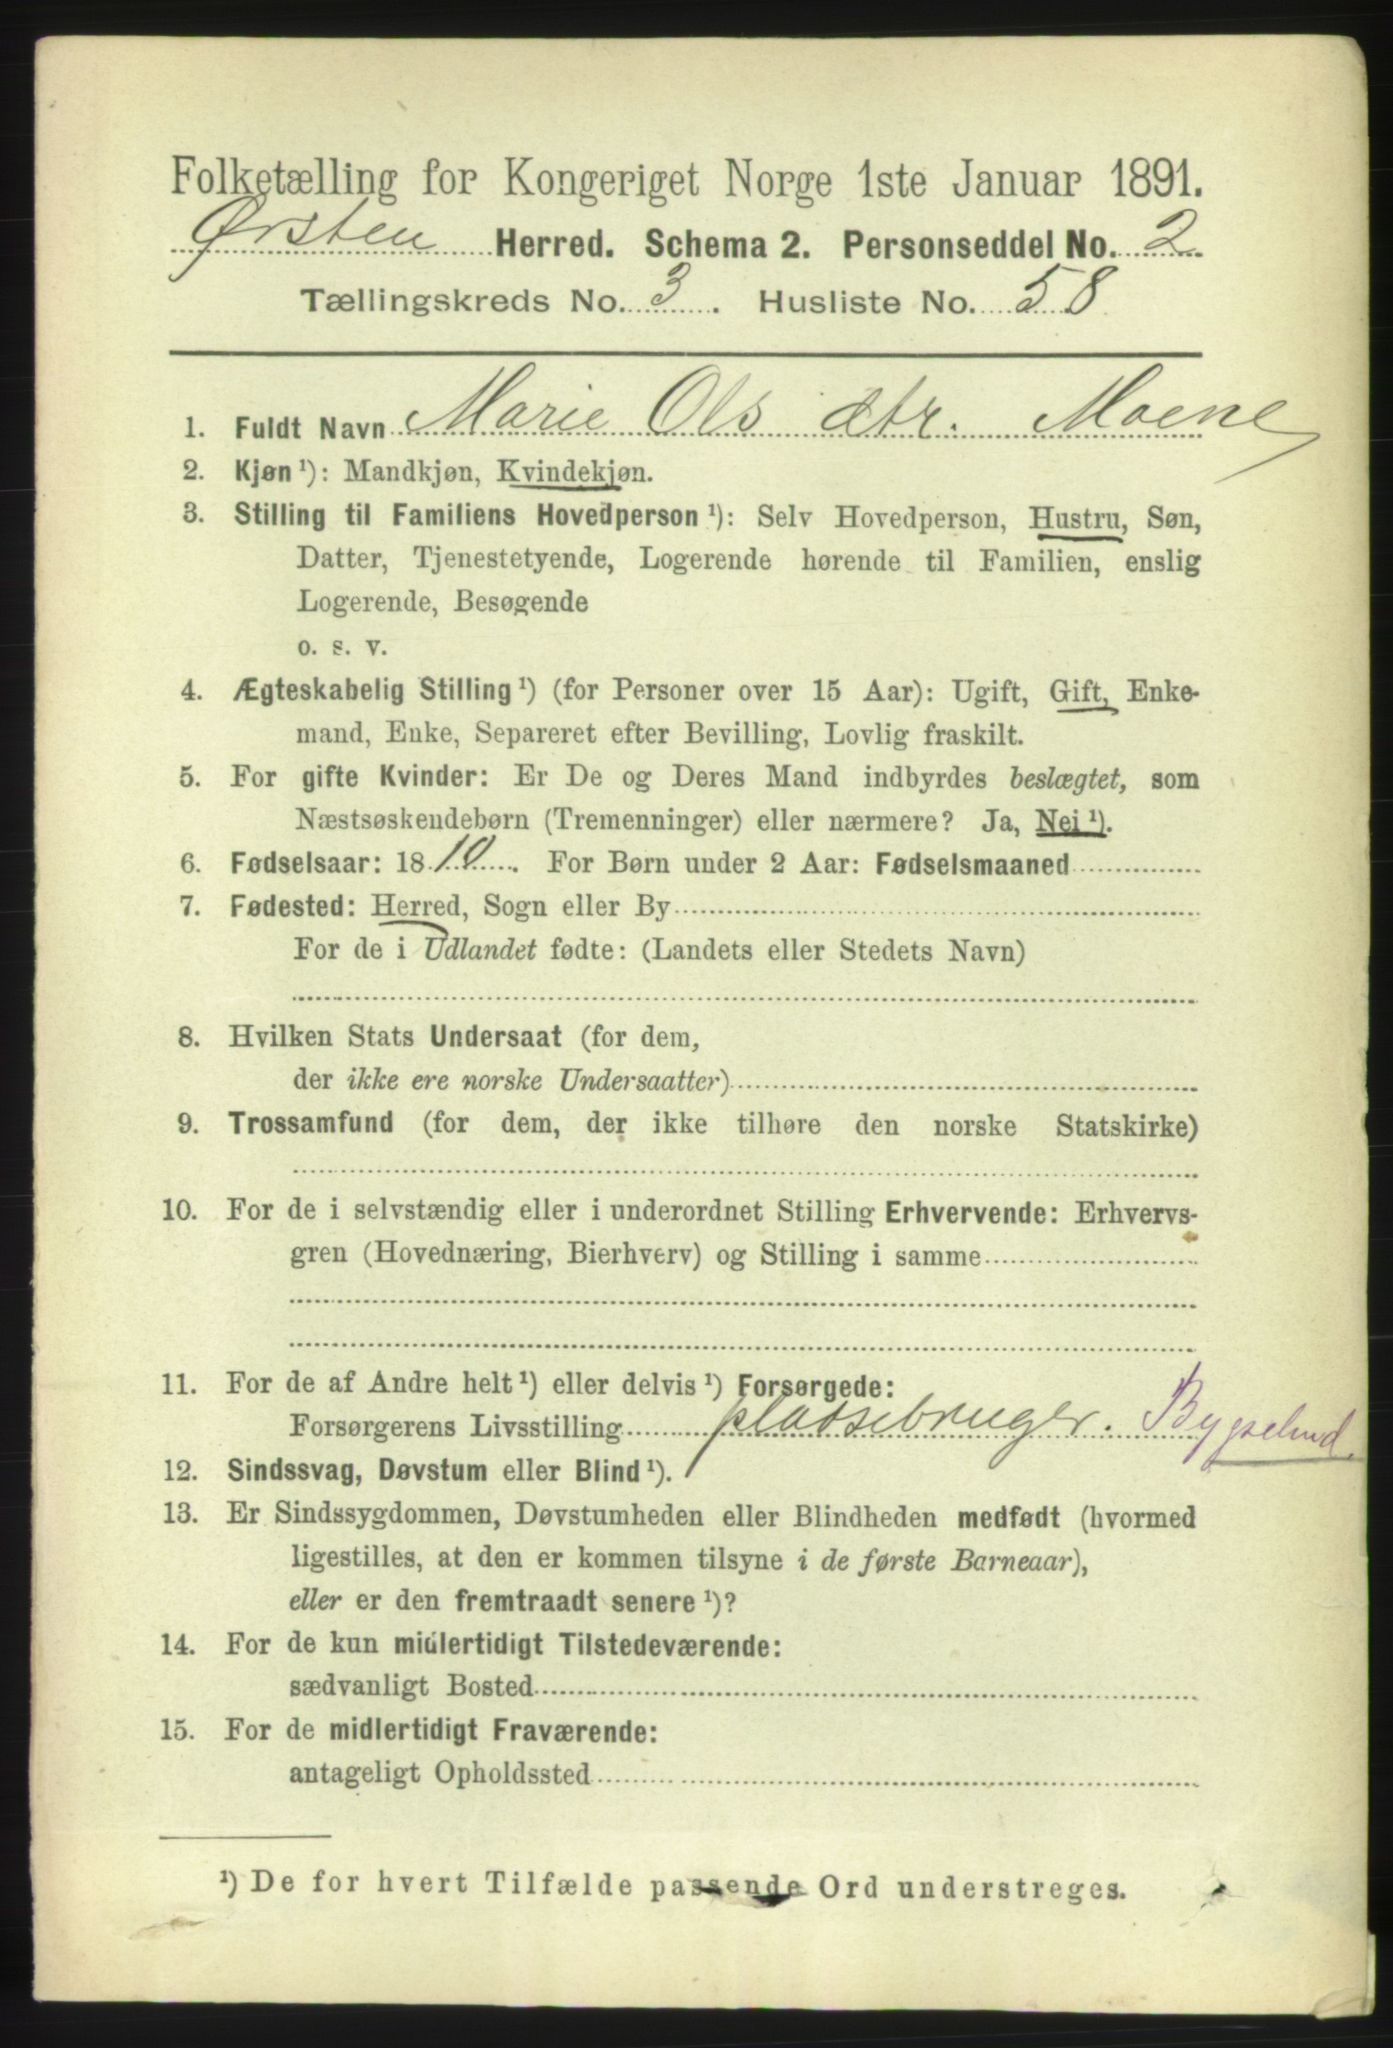 Folketælling for Kongeriget Norge 1ste Januar 1891.
Ørsten Herred. Schema 2. Personseddel No. 2
Tællingskreds No. 3. Husliste No. 58
1. Fuldt Navn Marie Ols dtr. Moene
2. Kjøn ¹): Mandkjøn, Kvindekjøn.
3. Stilling til Familiens Hovedperson ¹): Selv Hovedperson, Hustru, Søn,
Datter, Tjenestetyende, Logerende hørende til Familien, enslig
Logerende, Besøgende
o. s. v.
4. Ægteskabelig Stilling ¹) (for Personer over 15 Aar): Ugift, Gift, Enke-
mand, Enke, Separeret efter Bevilling, Lovlig fraskilt.
5. For gifte Kvinder: Er De og Deres Mand indbyrdes beslægtet, som
Næstsøskendebørn (Tremenninger) eller nærmere? Ja, Nei ¹).
6. Fødselsaar: 1810. For Børn under 2 Aar: Fødselsmaaned
7. Fødested: Herred, Sogn eller By
For de i Udlandet fødte: (Landets eller Stedets Navn)
8. Hvilken Stats Undersaat (for dem,
der ikke ere norske Undersaatter)
9. Trossamfund (for dem, der ikke tilhøre den norske Statskirke)
10. For de i selvstændig eller i underordnet Stilling Erhvervende: Erhvervs-
gren (Hovednæring, Bierhverv) og Stilling i samme
11. For de af Andre helt ¹) eller delvis ¹) Forsørgede:
Forsørgerens Livsstilling pladsebruger. Bygselmd.
12. Sindssvag, Døvstum eller Blind ¹).
13. Er Sindssygdommen, Døvstumheden eller Blindheden medfødt (hvormed
ligestilles, at den er kommen tilsyne i de første Barneaar),
eller er den fremtraadt senere ¹)?
14. For de kun midlertidigt Tilstedeværende:
sædvanligt Bosted
15. For de midlertidigt Fraværende:
antageligt Opholdssted
¹) De for hvert Tilfælde passende Ord understreges.